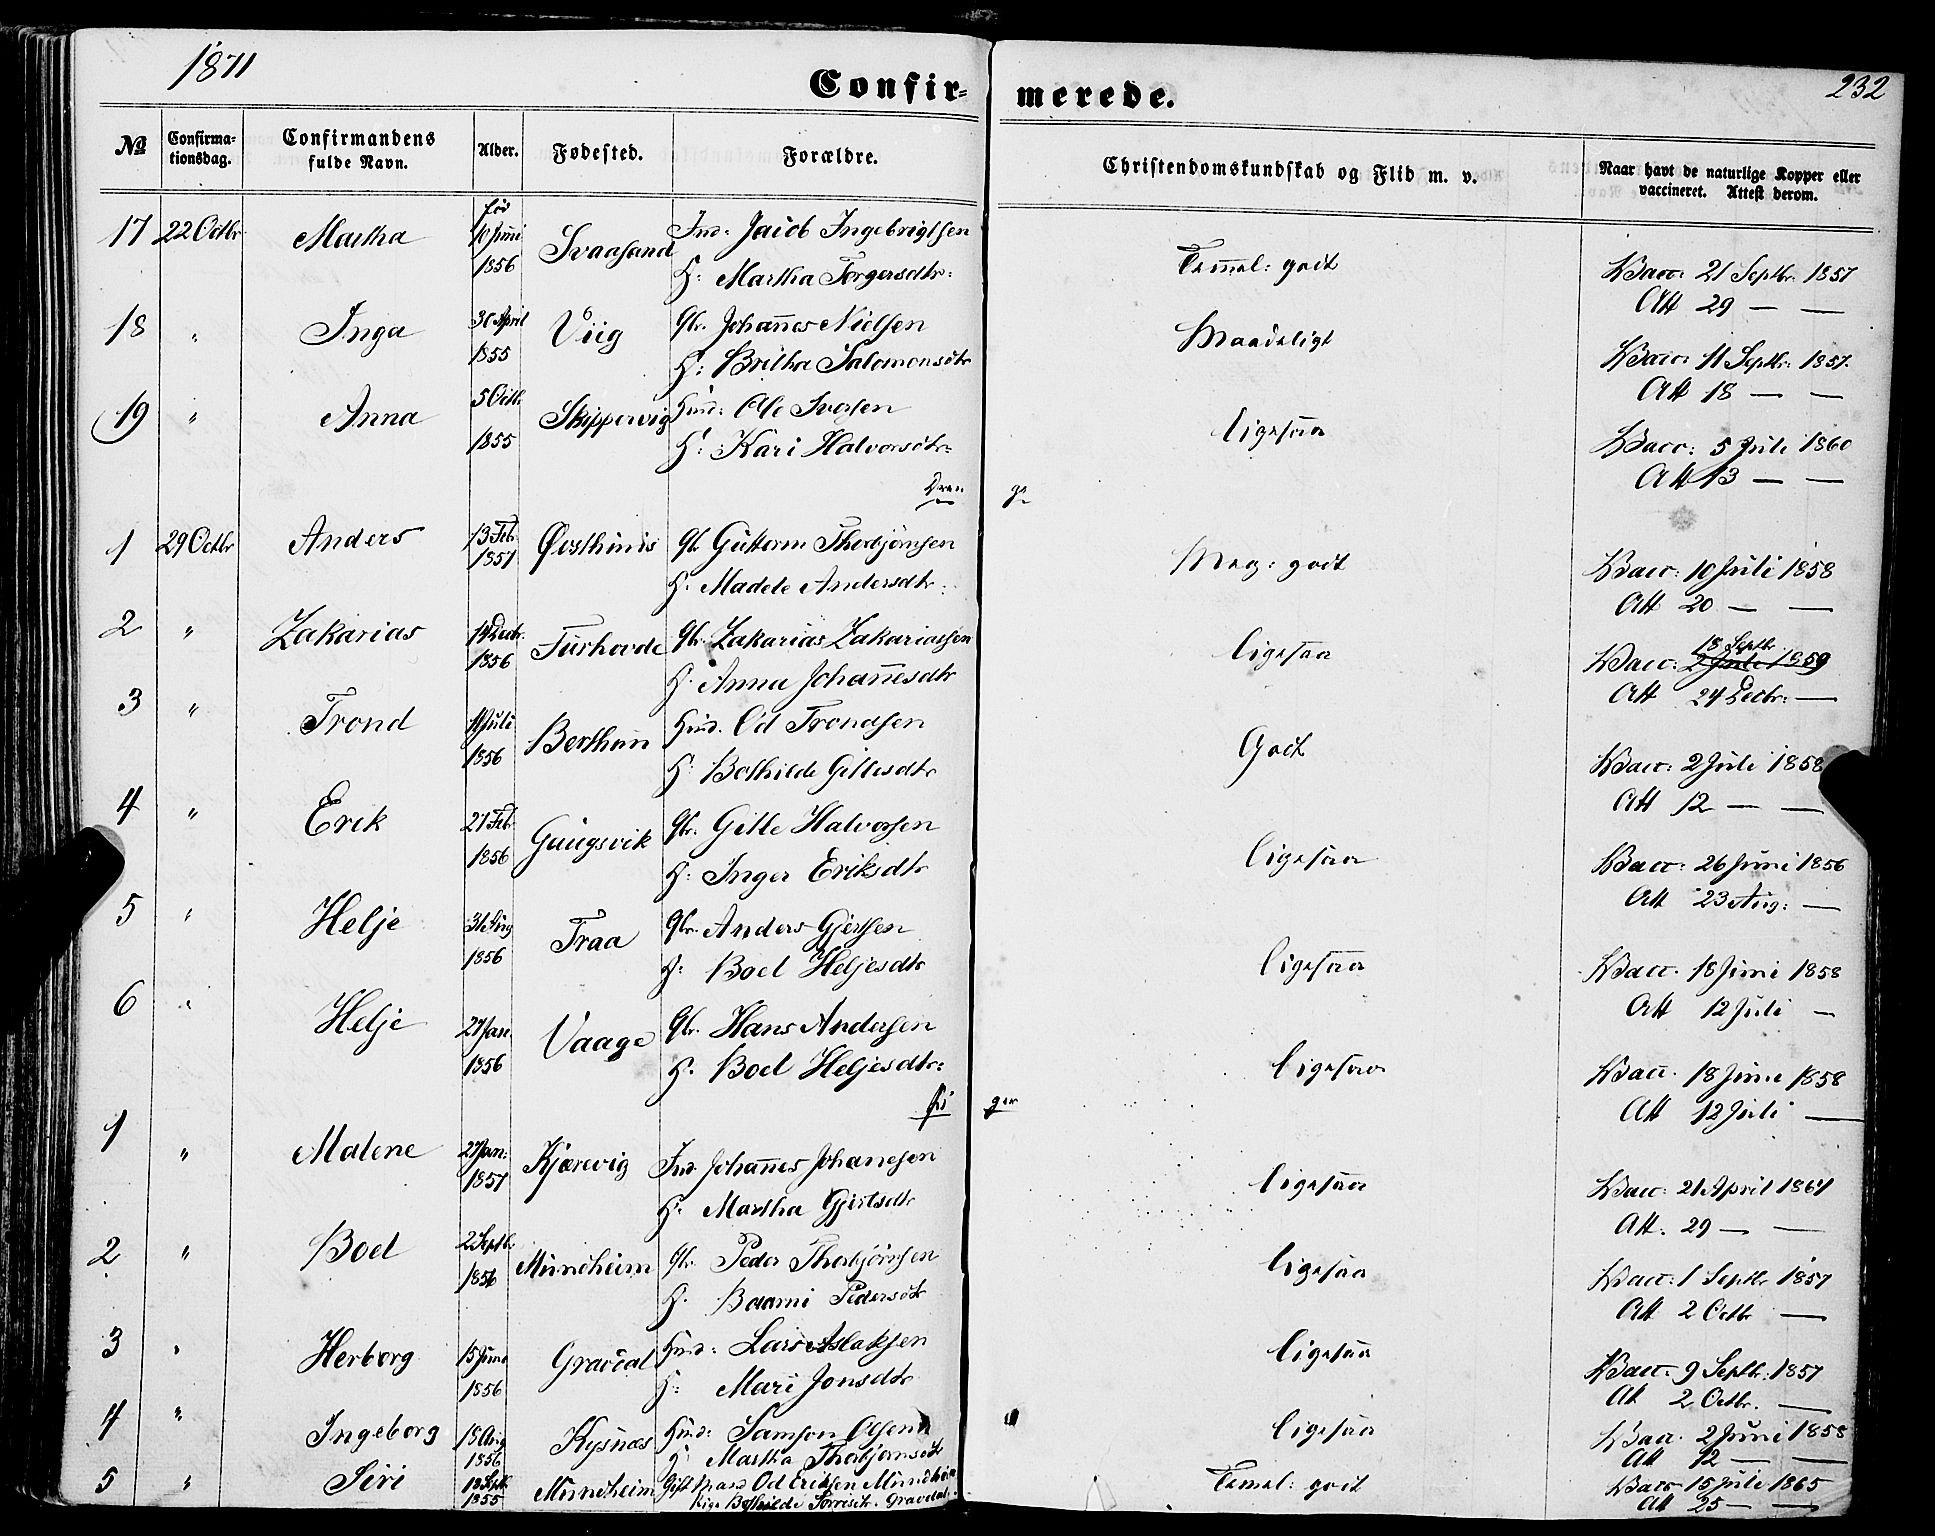 1871
232
Confir- merede.
No Confirmationsdag. Confirmandens fulde Navn. Alder. Fødested. Forældre. Christendomskundskab og Flid m. v. Naar havt de naturlige Kopper eller vaccineret. Attest derom.
17 22 Octbr Martha fød 10 Juni 1856 Svaasand Ind: Jacob Ingebrigtsen Temmel: godt Vacc: 21 Septbr. 1857
H: Martha Torgersdtr: Att 29 — —
18 " Inga 30 April 1855 Viig Gbr. Johannes Nielsen Maadeligt Vacc: 11 Septbr: 1857.
H: Britha Salomonsdtr Att 18 — —
19 " Anna 5 Octbr 1855 Skippervig Huusd: Ole Iversen ligesaa Vacc: 5 Juli 1860
H: Kari Halvorsdtr: Att 13 — —
Drenge
1 29 Octbr Anders 13 Febr 1857 Øvsthuus Gbr Guttorm Thorbjørnsen Meg: godt Vacc: 10 Juli 1858
H. Madele Andersdtr: Att 20 — —
2 " Zakarias 14 Decbr. 1856 Furhovde Gbr. Zakarias Zakariassen ligesaa Vacc: 18 Septbr 2 Juli 1859
H. Anna Johannesdtr Att 24 Decbr: —
3 " Trond 11 Juli 1856 Berthun Huusd. Od Trondsen Godt Vacc: 2 Juli 1858
H: Bothilde Gittesdtr Att 12 — —
4 " Erik 21 Febr 1856 Guugsvik Gbr. Gitle Halvorsen ligesaa Vacc: 26 Juni 1856
H: Inger Eriksdtr Att 23 Aug: —
5 " Helje 31 Aug 1856 Traa Gbr. Anders Gjertsen ligesaa Vacc. 18 Juni 1858
H: Boel Heljesdtr Att 12 Juli —
6 " Helje 27 Jan. 1856 Vaage Gbr. Hans Andersen ligesaa Vacc. 18 Juni 1858
H. Boel Heljesdtr: Att 12 Juli —
Piger
1 " Malene 27 Jan: 1857 Kjærevig Ind. Johannes Johannesen ligesaa Vacc: 21 April 1864
H. Martha Gjertsdtr Att. 29 — —
2 " Boel 2 Septbr 1856 Mundheim Gbr. Peder Thorbjørnsen ligesaa Vacc: 1 Septbr 1857
H. Baarni Pedersdtr Att 2 Octbr —
3 " Herborg 15 Juni 1856 Gravdal Huusd: Lars Aslaksen ligesaa Vacc. 9 Septbr: 1857
H: Mari Jonsdtr Att 2 Octbr. —
4 " Ingeborg 15 Aug 1856 Kysnæs Huusd: Samson Olsen ligesaa Vacc. 2 Juni 1858
H: Martha Thorbjørnsdtr Att 12 — —
5 " Siri 18 Septbr 1855 Mundheim Gift Mand Od Eriksen Mundheim Temel: godt Vacc 15 Juli 1865
Pige Bothilde Sjursdtr. Gravdal. Att 25 — —